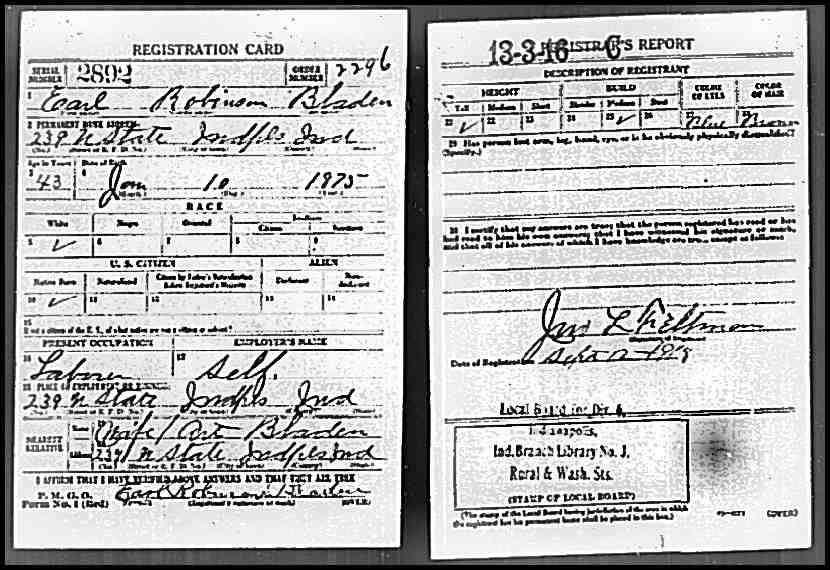 REGISTRATION CARD
SERIAL NUMBER 2892 ORDER NUMBER 2296
1 Earl Robinson Bladen
2 PERMANENT HOME ADDRESS
239 N State Indpls Ind
(No.) (Street or R. F. D. No.) (City or town) (County) (State)
Age in Years Date of Birth
3 43 4 Jan 10 1875
(Month.) (Day.) (Year.)
RACE
White Negro Oriental Indian
Citizen Noncitizen
5 ✓ 6 7 8 9
U. S. CITIZEN ALIEN
Native Born Naturalized Citizen by Father's Naturalization Before Registrant's Majority Declarant Non-declarant
10 ✓ 11 12 13 14
15
If not a citizen of the U. S., of what nation are you a citizen or subject?
PRESENT OCCUPATION EMPLOYER'S NAME
16 Laborer 17 Self.
18 PLACE OF EMPLOYMENT OR BUSINESS
239 N State Indpls Ind
(No.) (Street or R. F. D. No.) (City or town) (County) (State)
NEAREST RELATIVE Name Bladen
Address 239 N State Indpls Ind
(No.) (Street or R. F. D. No.) (City or town) (County) (State)
I AFFIRM THAT I HAVE VERIFIED ABOVE ANSWERS AND THAT THEY ARE TRUE
P. M. G. O.
Form No. 1 (Red) Earl Robinson Bladen
(Registrant's signature or mark) (OVER)
13-3-16 C
REGISTRAR'S REPORT
DESCRIPTION OF REGISTRANT
HEIGHT BUILD COLOR OF EYES COLOR OF HAIR
Tall Medium Short Slender Medium Stout
21 ✓ 22 23 24 25 ✓ 26 27 Blue 28 Brown
29 Has person lost arm, leg, hand, eye, or is he obviously physically disqualified?
(Specify.)
30 I certify that my answers are true; that the person registered has read or has
had read to him his own answers; that I have witnessed his signature or mark,
and that all of his answers of which I have knowledge are true, except as follows:
(Signature of Registrar)
Date of Registration Sept 1918
Local Board for Div. 6,
Indianapolis,
Ind. Branch Library No. 3,
Rural & Wash. Sts.
(STAMP OF LOCAL BOARD)
(The stamp of the Local Board having jurisdiction of the area in which
the registrant has his permanent home shall be placed in this box.)
(OVER)